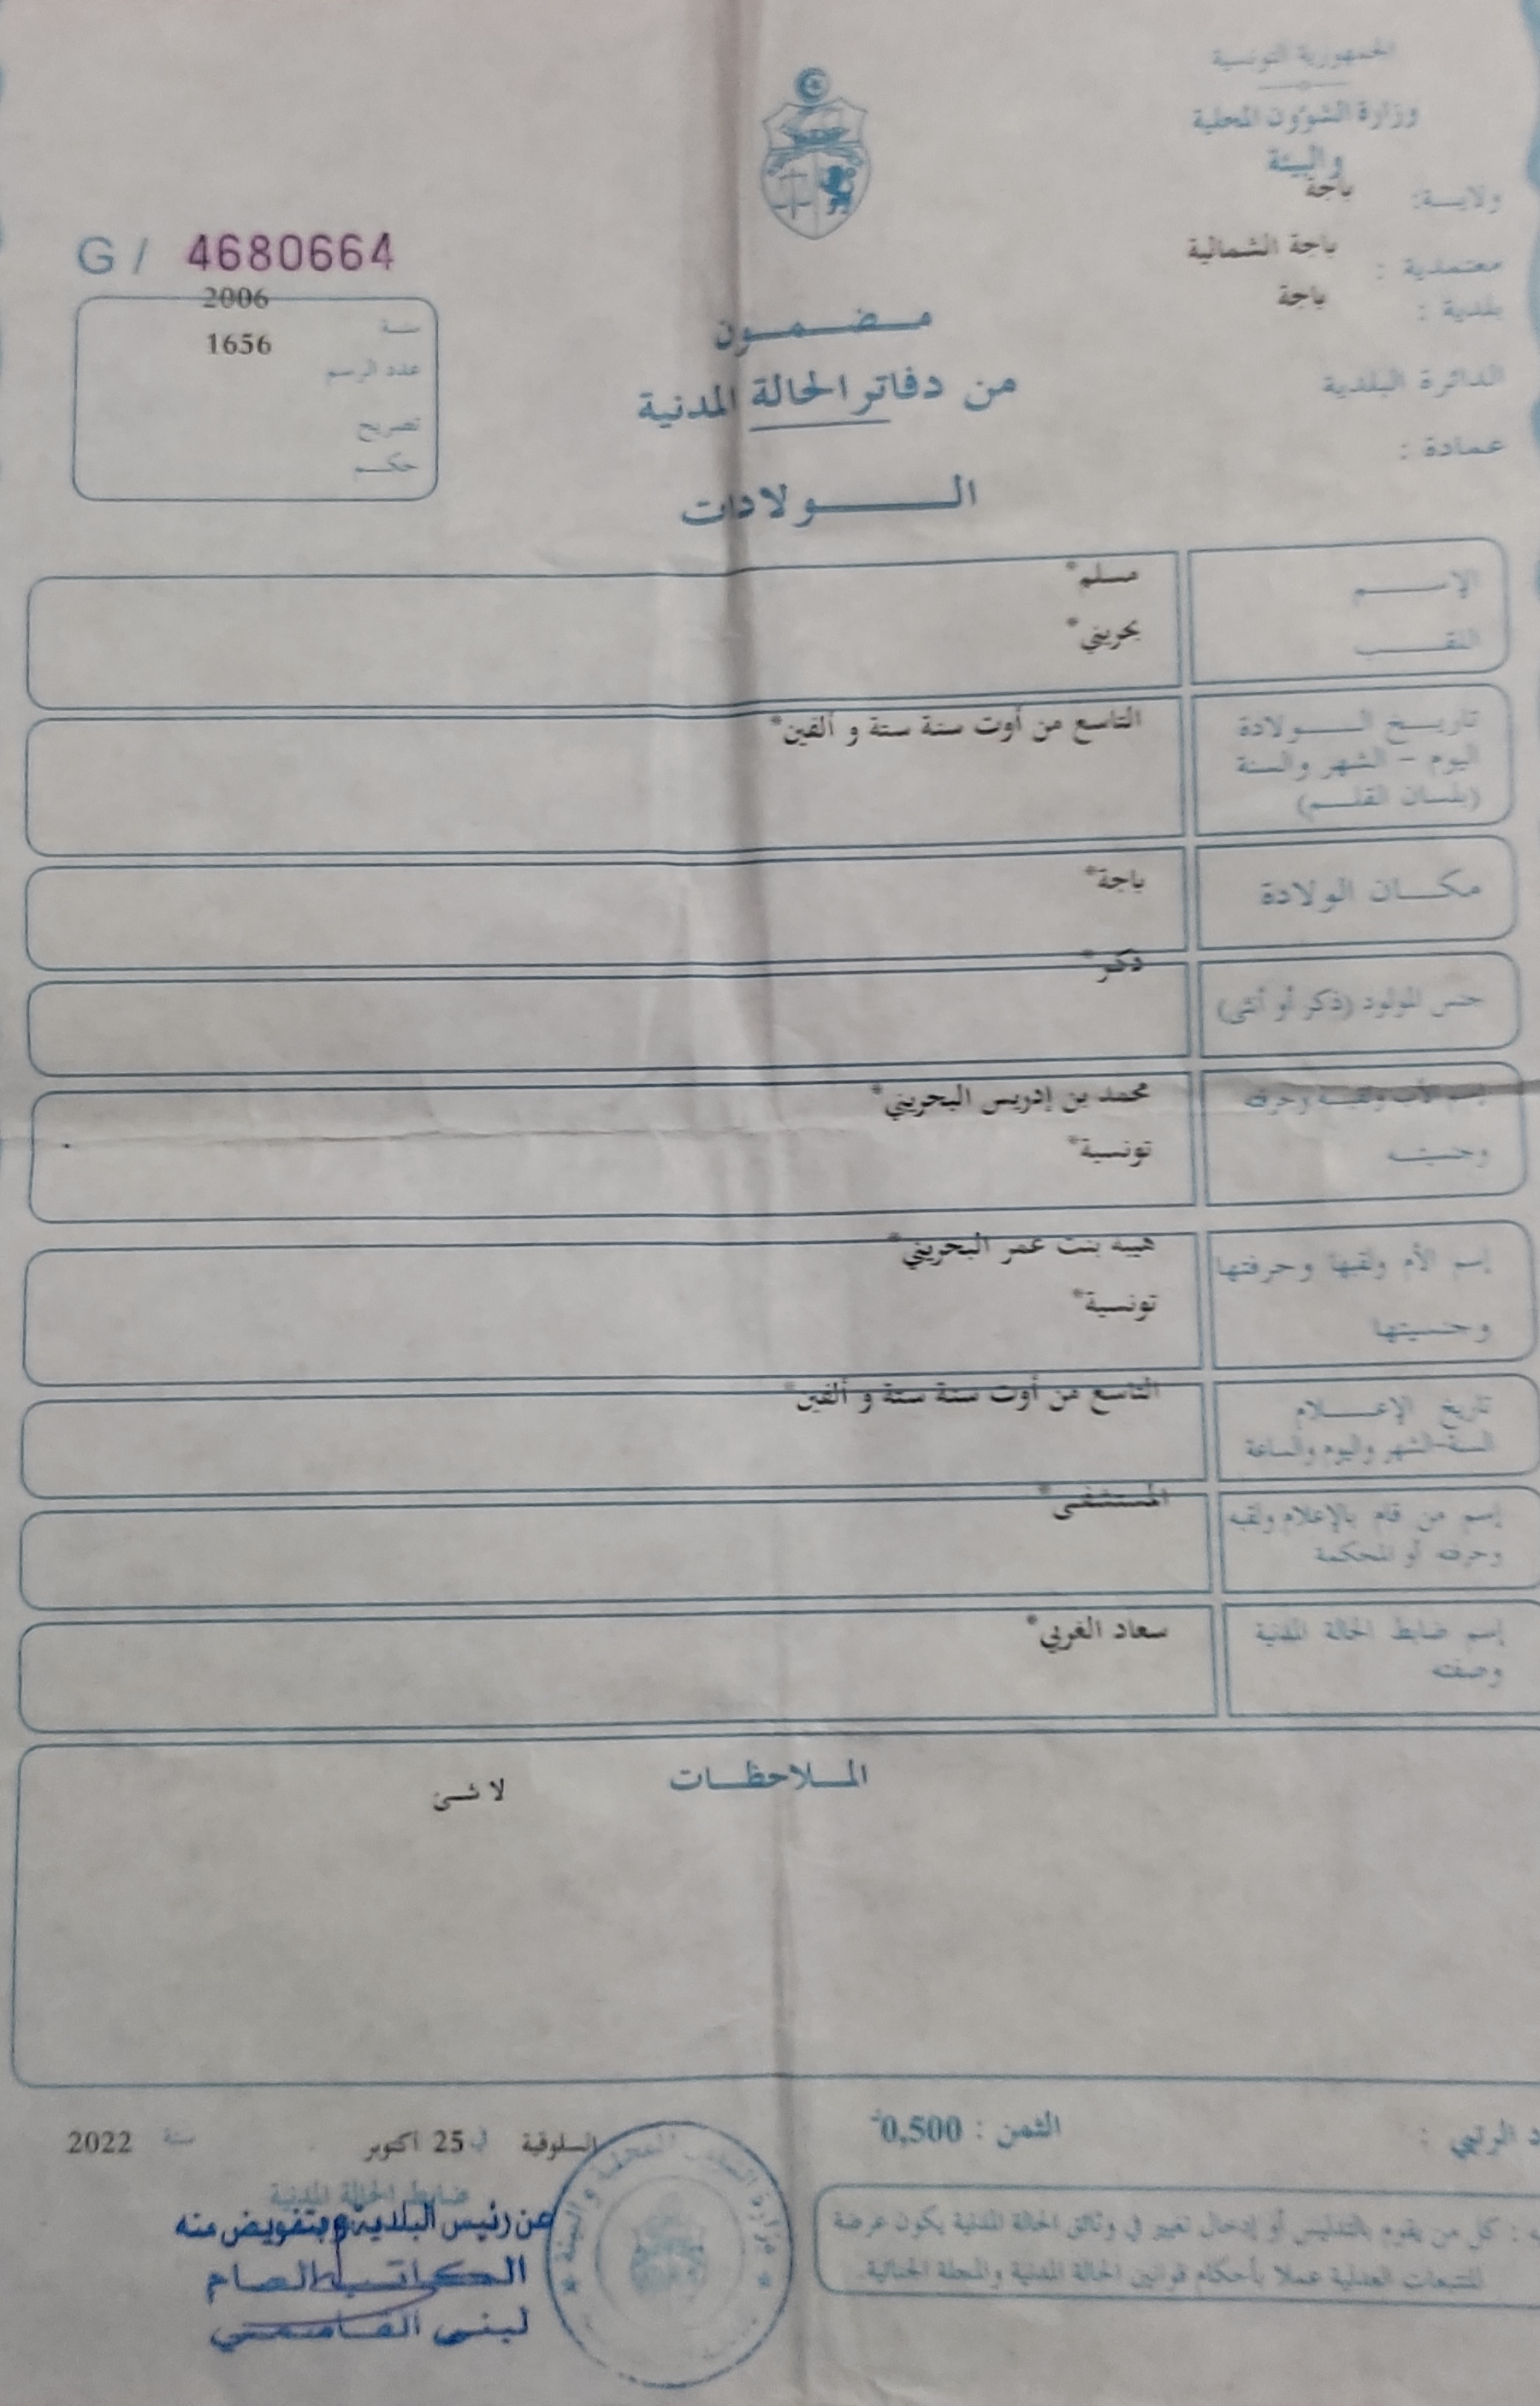 الجمهورية التونسية
وزارة الشؤون المحلية
والبيئة
ولايـة: باجة
معتمدية : باجة الشمالية
بلدية : باجة
الدائرة البلدية
عمادة :
G / 4680664
سنة 2006
عدد الرسم 1656
تصريح
حكم
مضمون
من دفاتر الحالة المدنية
الولادات
الإسم مسلم*
اللقب بحريني*
تاريخ الولادة التاسع من أوت سنة ستة و ألفين*
اليوم - الشهر والسنة
(بلسان القلم)
مكان الولادة باجة*
جنس المولود (ذكر أو أنثى) ذكر*
إسم الأب ولقبه وحرفته محمد بن إدريس البحريني*
وجنسيته تونسية*
إسم الأم ولقبها وحرفتها هيبه بنت عمر البحريني*
وجنسيتها تونسية*
تاريخ الإعلام التاسع من أوت سنة ستة و ألفين*
السنة-الشهر واليوم والساعة
إسم من قام بالإعلام ولقبه المستشفى*
وحرفته أو المحكمة
إسم ضابط الحالة المدنية سعاد الغربي*
وصفته
الملاحظات
لا شئ
الرتبي :
الثمن : 0,500
السلوقية في 25 أكتوبر سنة 2022
ضابط الحالة المدنية
عن رئيس البلدية وبتفويض منه
الكاتب العام
لبنى القاسمي
وزارة الشؤون المحلية والبيئة
: كل من يقوم بالتدليس أو إدخال تغيير في وثائق الحالة المدنية يكون عرضة
للتتبعات العدلية عملا بأحكام قوانين الحالة المدنية والمجلة الجنائية.